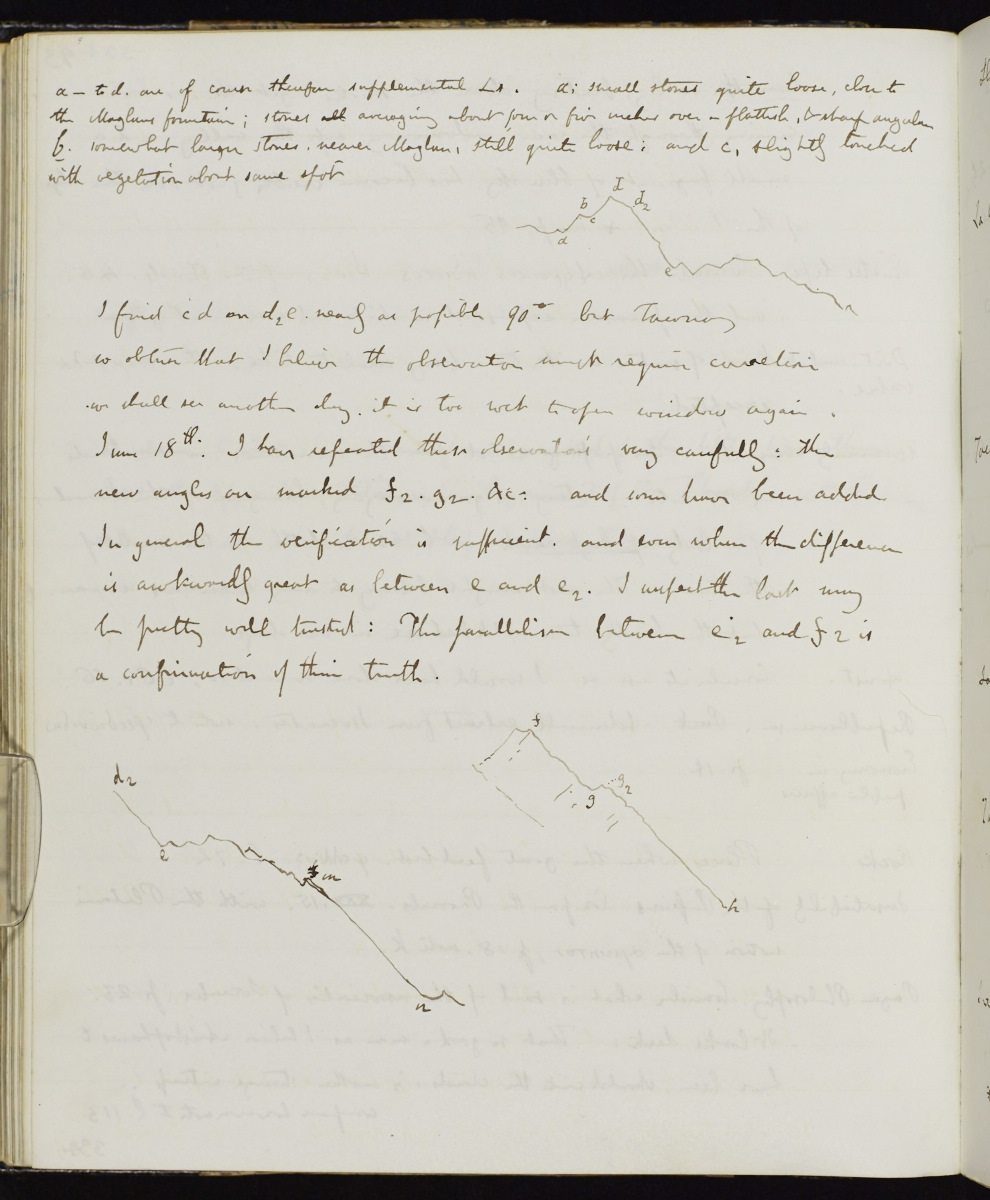 a – to d. are of course therefore supplemental Ls. a; small stones quite loose, close to
the Maglans fountain; stones all averaging about four or five inches over – flattish, & sharp angular
b. somewhat larger stones. nearer Maglan, still quite loose: and c, slightly touched
with vegetation about same spot
b I d2
c
a
e
I find c d on d2 e. nearly as possible 90° but
so obtuse that I believe the observation must require correction
we shall see another day. it is too wet to open window again.
June 18th. I have repeated these observations very carefully: the
new angles are marked f2. g2. &c: and some have been added
In general the verification is sufficient. and even when the difference
is awkwardly great as between e and e2. I suspect the last may
be pretty well trusted: The parallelism between e2 and f2 is
a confirmation of their truth.
f
d2
g2
g
e
m
h
n